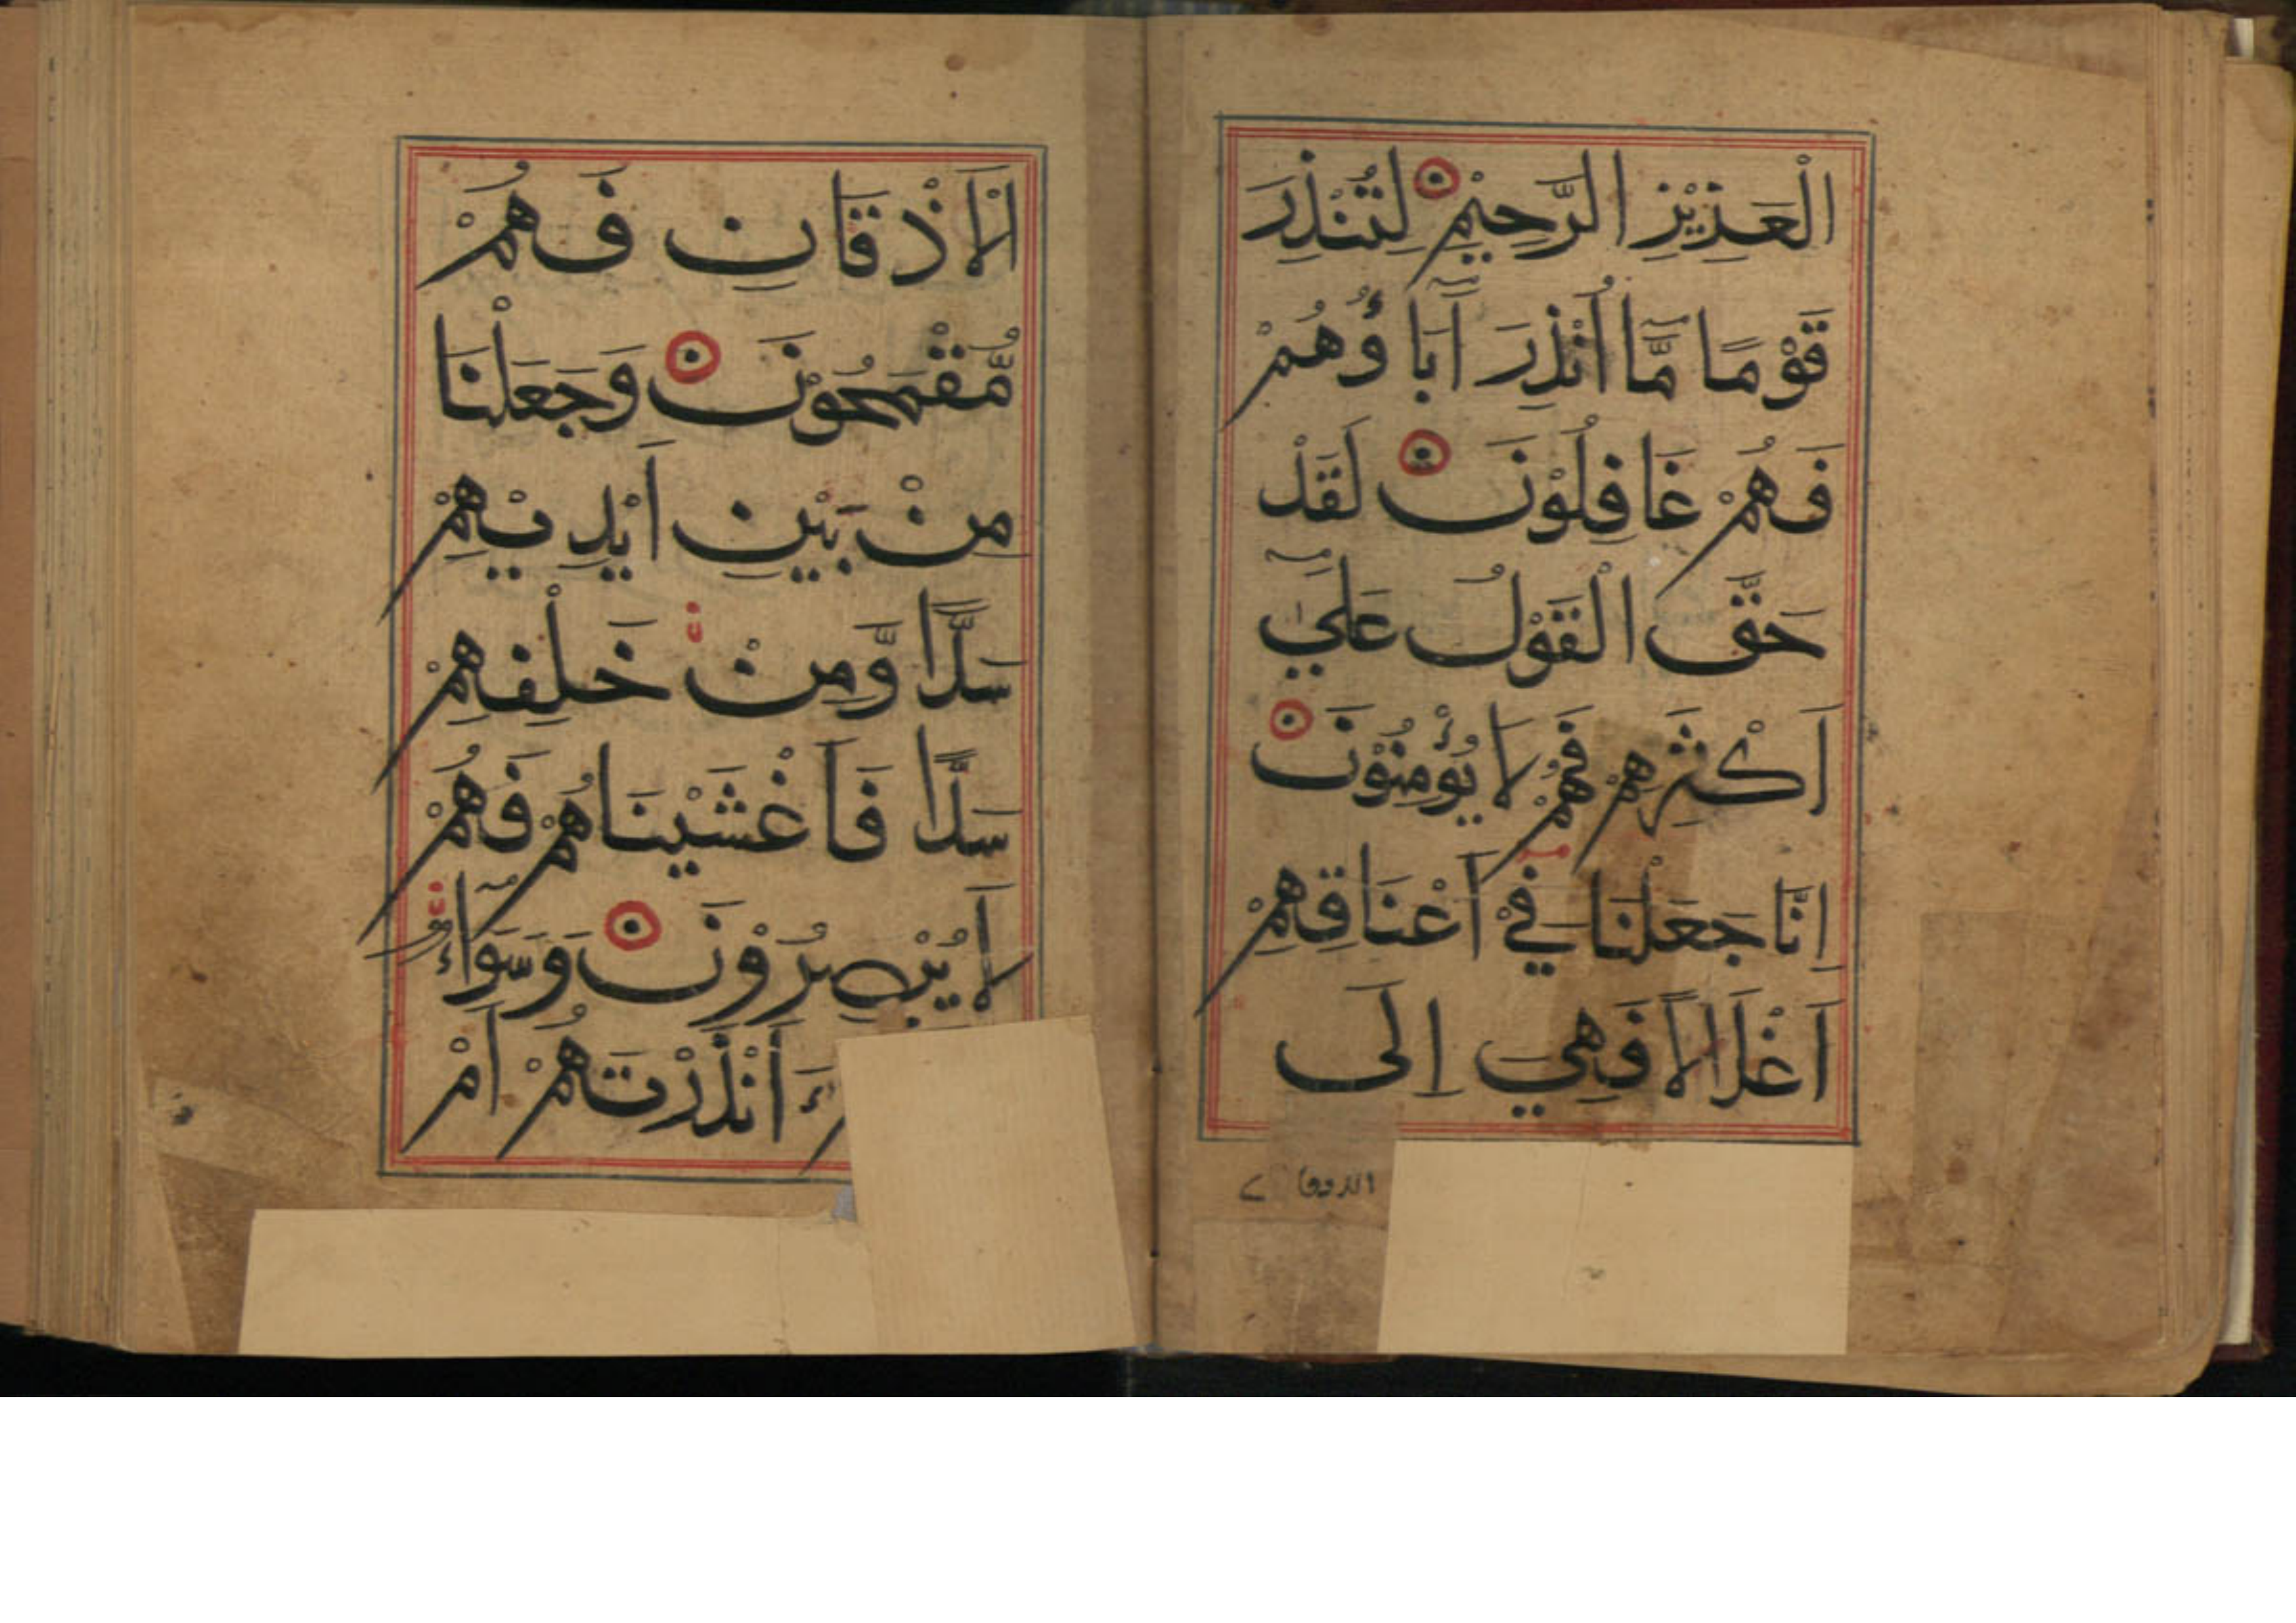 الْعَزِيْزِ الرَّحِيْمِ لِتُنْذِرَ
قَوْمًا مَّا اُنْذِرَ اٰبَاؤُهُمْ
فَهُمْ غَافِلُوْنَ لَقَدْ
حَقَّ الْقَوْلُ عَلٰي
اَكْثَرِهِمْ فَهُمْ لَا يُؤْمِنُوْنَ
اِنَّا جَعَلْنَا فِيْ اَعْنَاقِهِمْ
اَغْلَالًا فَهِيَ اِلَى
الاذقا
الْاَذْقَانِ فَهُمْ
مُّقْمَحُوْنَ وَجَعَلْنَا
مِنْ بَيْنِ اَيْدِيْهِمْ
سَدًّا وَّمِنْ خَلْفِهِمْ
سَدًّا فَاَغْشَيْنَاهُمْ فَهُمْ
لَا يُبْصِرُوْنَ وَسَوَآءٌ
ءَاَنْذَرْتَهُمْ اَمْ